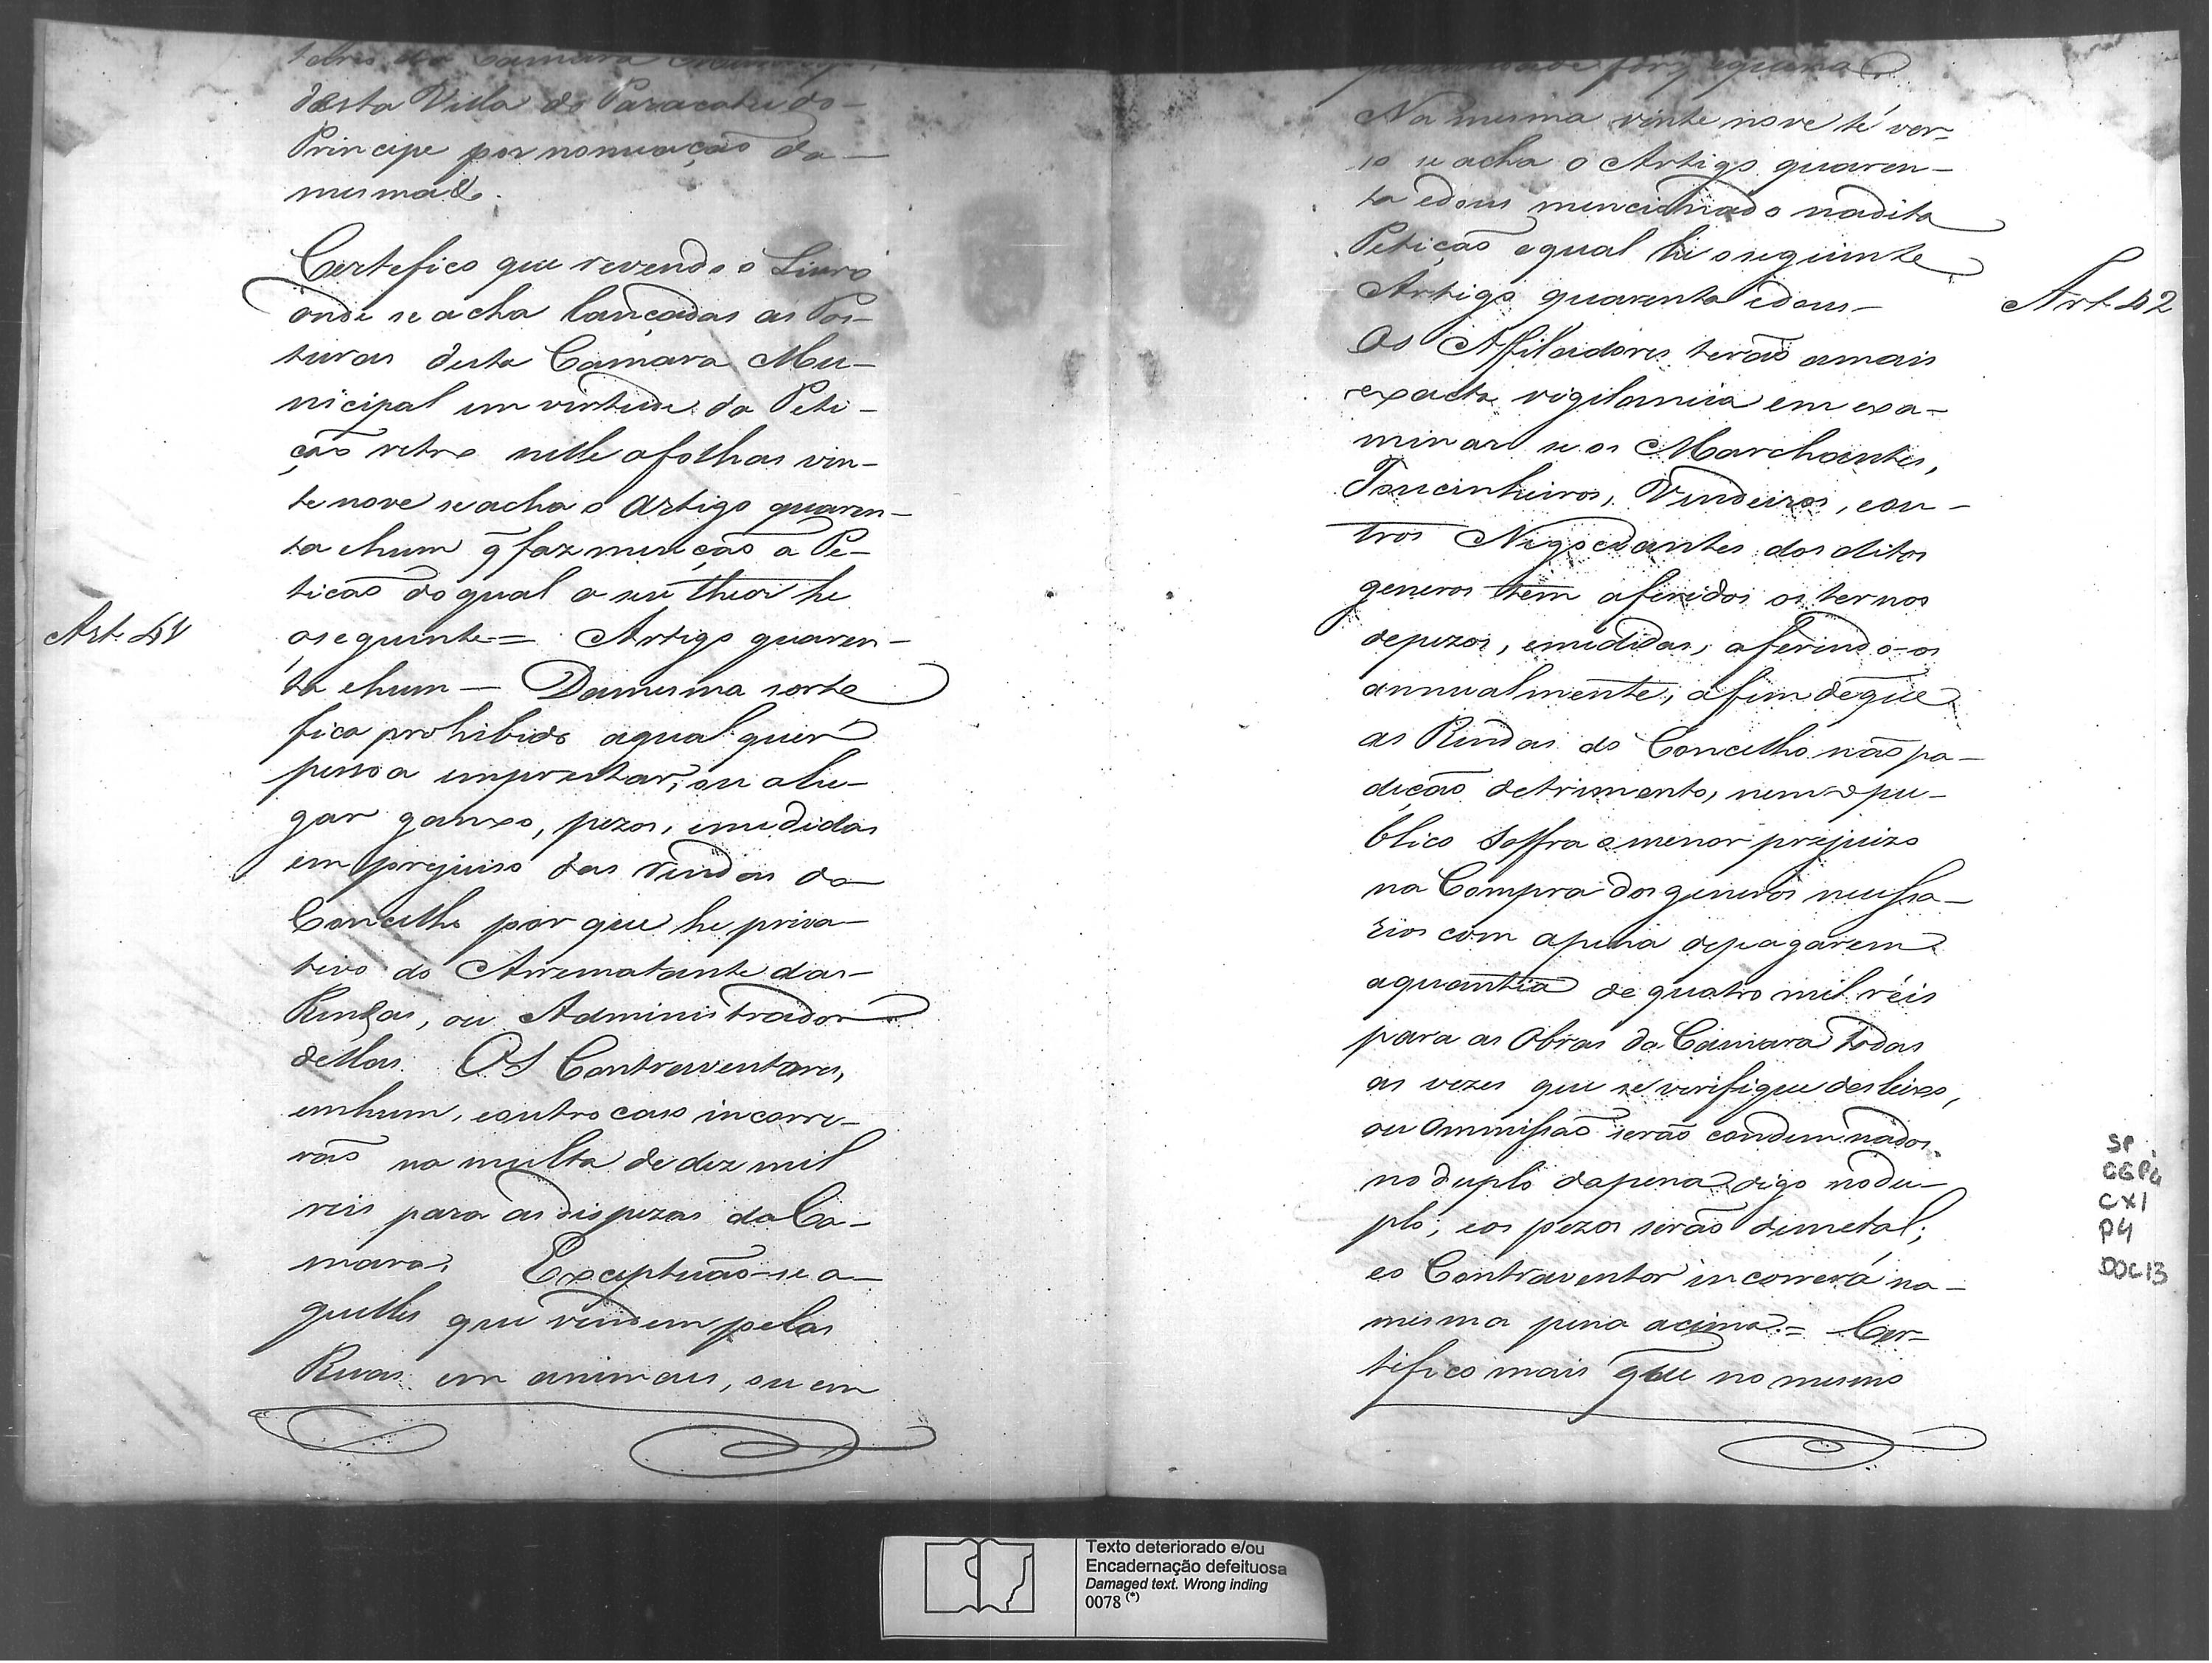 desta Villa do Paracatu do-
Principe por nomiação da-
mesma &.
Certefico que revendo o Livro
onde se acha lançadas as Pos-
turas desta Camara Mu-
nicipal em virtude da Peti-
ção retro nelle afolhas vin-
te nove se acha o Artigo quaren-
ta ehum q̃ faz menção a Pe-
tição do qual o seu theor he
Art. 41
oseguinte= Artigo quaren-
ta ehum — Damesma sorte
fica prohibido aqual quer
pessoa emprestar, ou alu-
gar ganxo, pezos, emedidas
em prejuiso das Rendas do
Concelho por que he priva-
tivo do Arrematante das-
Rendas, ou Administrador
dellas. Os Contraventores,
emhum, eoutro caso incorre-
rão na multa de dez mil
reis para as dispezas da Ca-
mara. Exceptuão-se a-
quelles que vendem pelas
Ruas em animaes, ou em
Na mesma vinte nove té ver-
so se acha o Artigo quaren-
ta edous mencionado nadita
Petição oqual he oseguinte
Artigo quarenta edous-
Art. 42
Os Affiladores terão amais
exacta vigilancia em exa-
minar se os Marchantes,
Toucinheiros, Vendeiros, eou-
tros Negociantes dos ditos
generos tem aferidos os ternos
depezos, emedidas, aferindo-os
annualmente, afim deque
as Rendas do Concelho não pa-
dição detrimento, nem o pu-
blico soffra o menor prejuizo
na Compra dos generos necessa-
rios com apena depagarem
aquantia de quatro mil réis
para as Obras da Camara todas
as vezes que se verifique desleixo,
ou ommissão serão condemnados
no duplo dapena digo nodu-
plo; eos pezos serão demetal;
eo Contraventor incorrerá na-
mesma pena acima.= Cer-
tifico mais que no mesmo
SP
CGP4
CX1
P4
DOC13
Texto deteriorado e/ou
Encadernação defeituosa
Damaged text. Wrong inding
0078 (*)